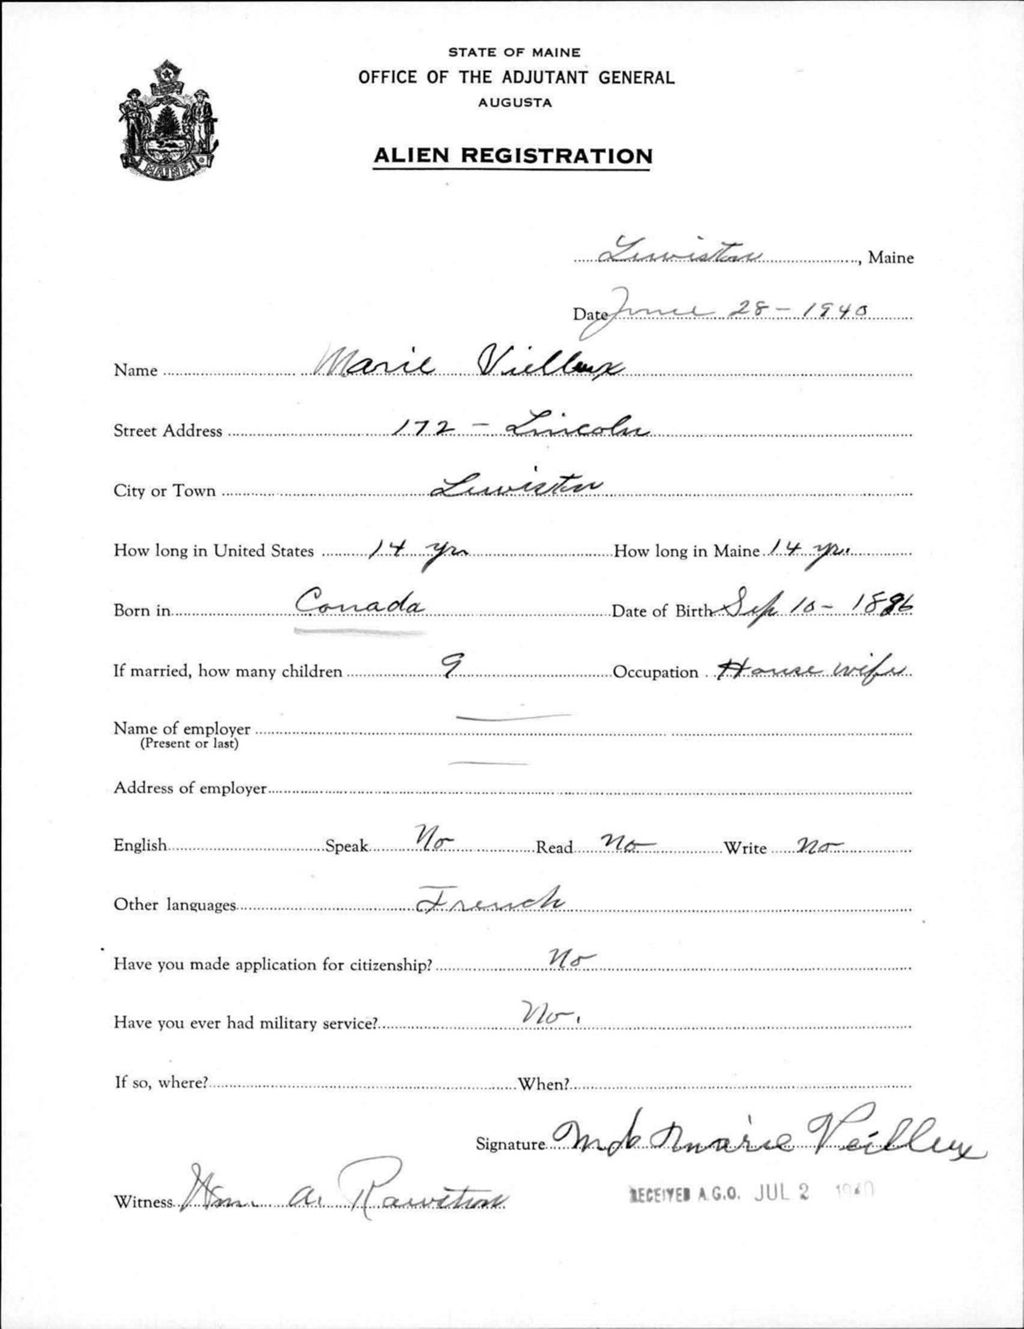 STATE OF MAINE
OFFICE OF THE ADJUTANT GENERAL
AUGUSTA
ALIEN REGISTRATION
MAINE
Lewiston, Maine
Date June 28 - 1940
Name Marie Vielleux
Street Address 172 - Lincoln
City or Town Lewiston
How long in United States 14 yrs How long in Maine 14 yr.
Born in Canada Date of Birth Sep 10 - 1886
If married, how many children 9 Occupation House wife
Name of employer
(Present or last)
Address of employer
English Speak No Read No Write No
Other languages French
Have you made application for citizenship? No
Have you ever had military service? No.
If so, where? When?
Signature Marie Veilleux
Witness Wm. A. Rawston
RECEIVED A.G.O. JUL 2 1940